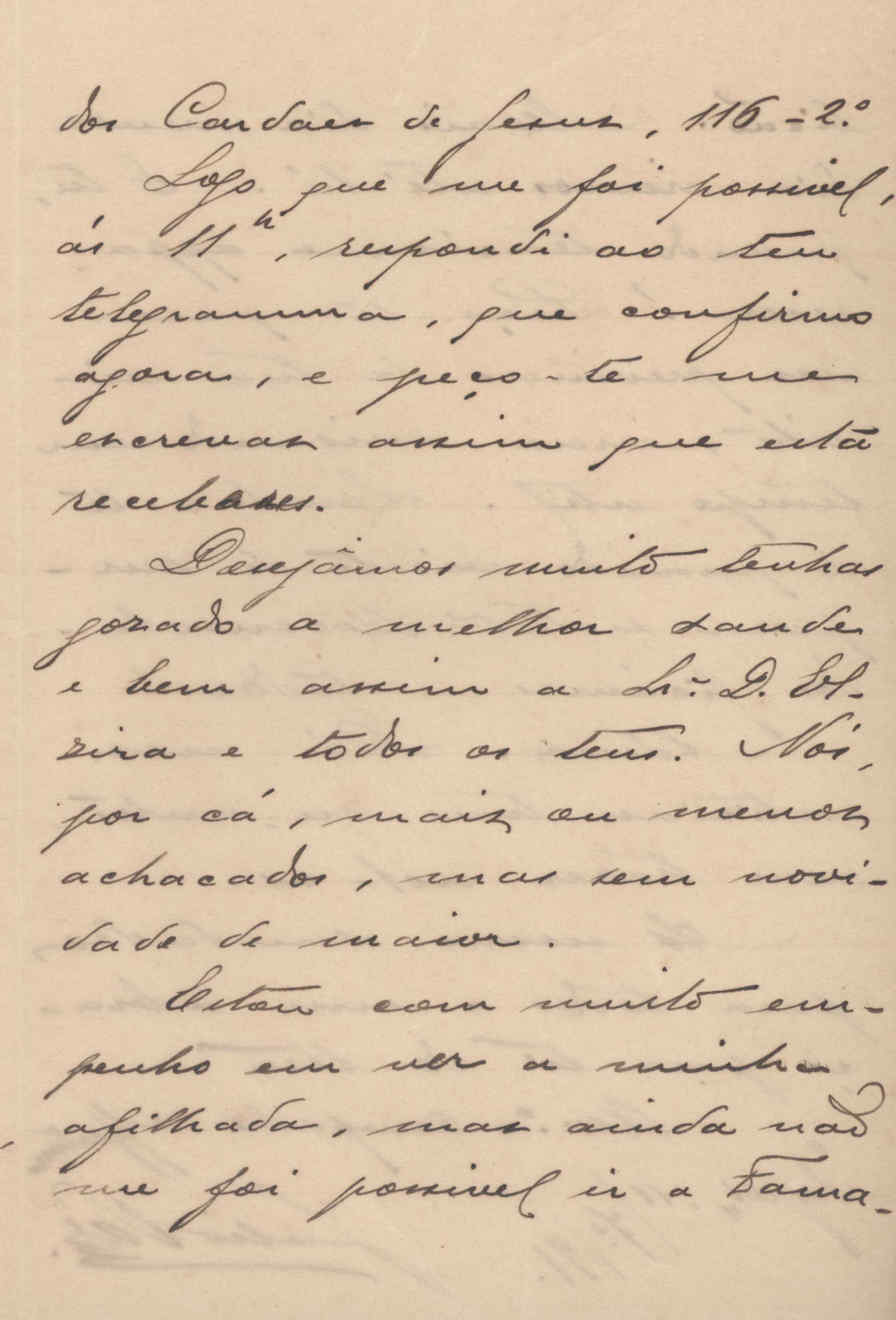 dos Cardaes de Jesus, 116-2.º
Logo que me foi possivel,
ás 11h, respondi ao teu
telegramma, que confirmo
agora, e peço-te me
escrevas assim que esta
recebares.
Desejâmos muito tenhas
gozado a melhor saude
e bem assim a Sr.ª D. El-
zira e todos os teus. Nós,
por cá, mais ou menos
achacados, mas sem novi-
dade de maior.
Estou com muito em-
penho em ver a minha
afilhada, mas ainda não
me foi possivel ir a Fama-